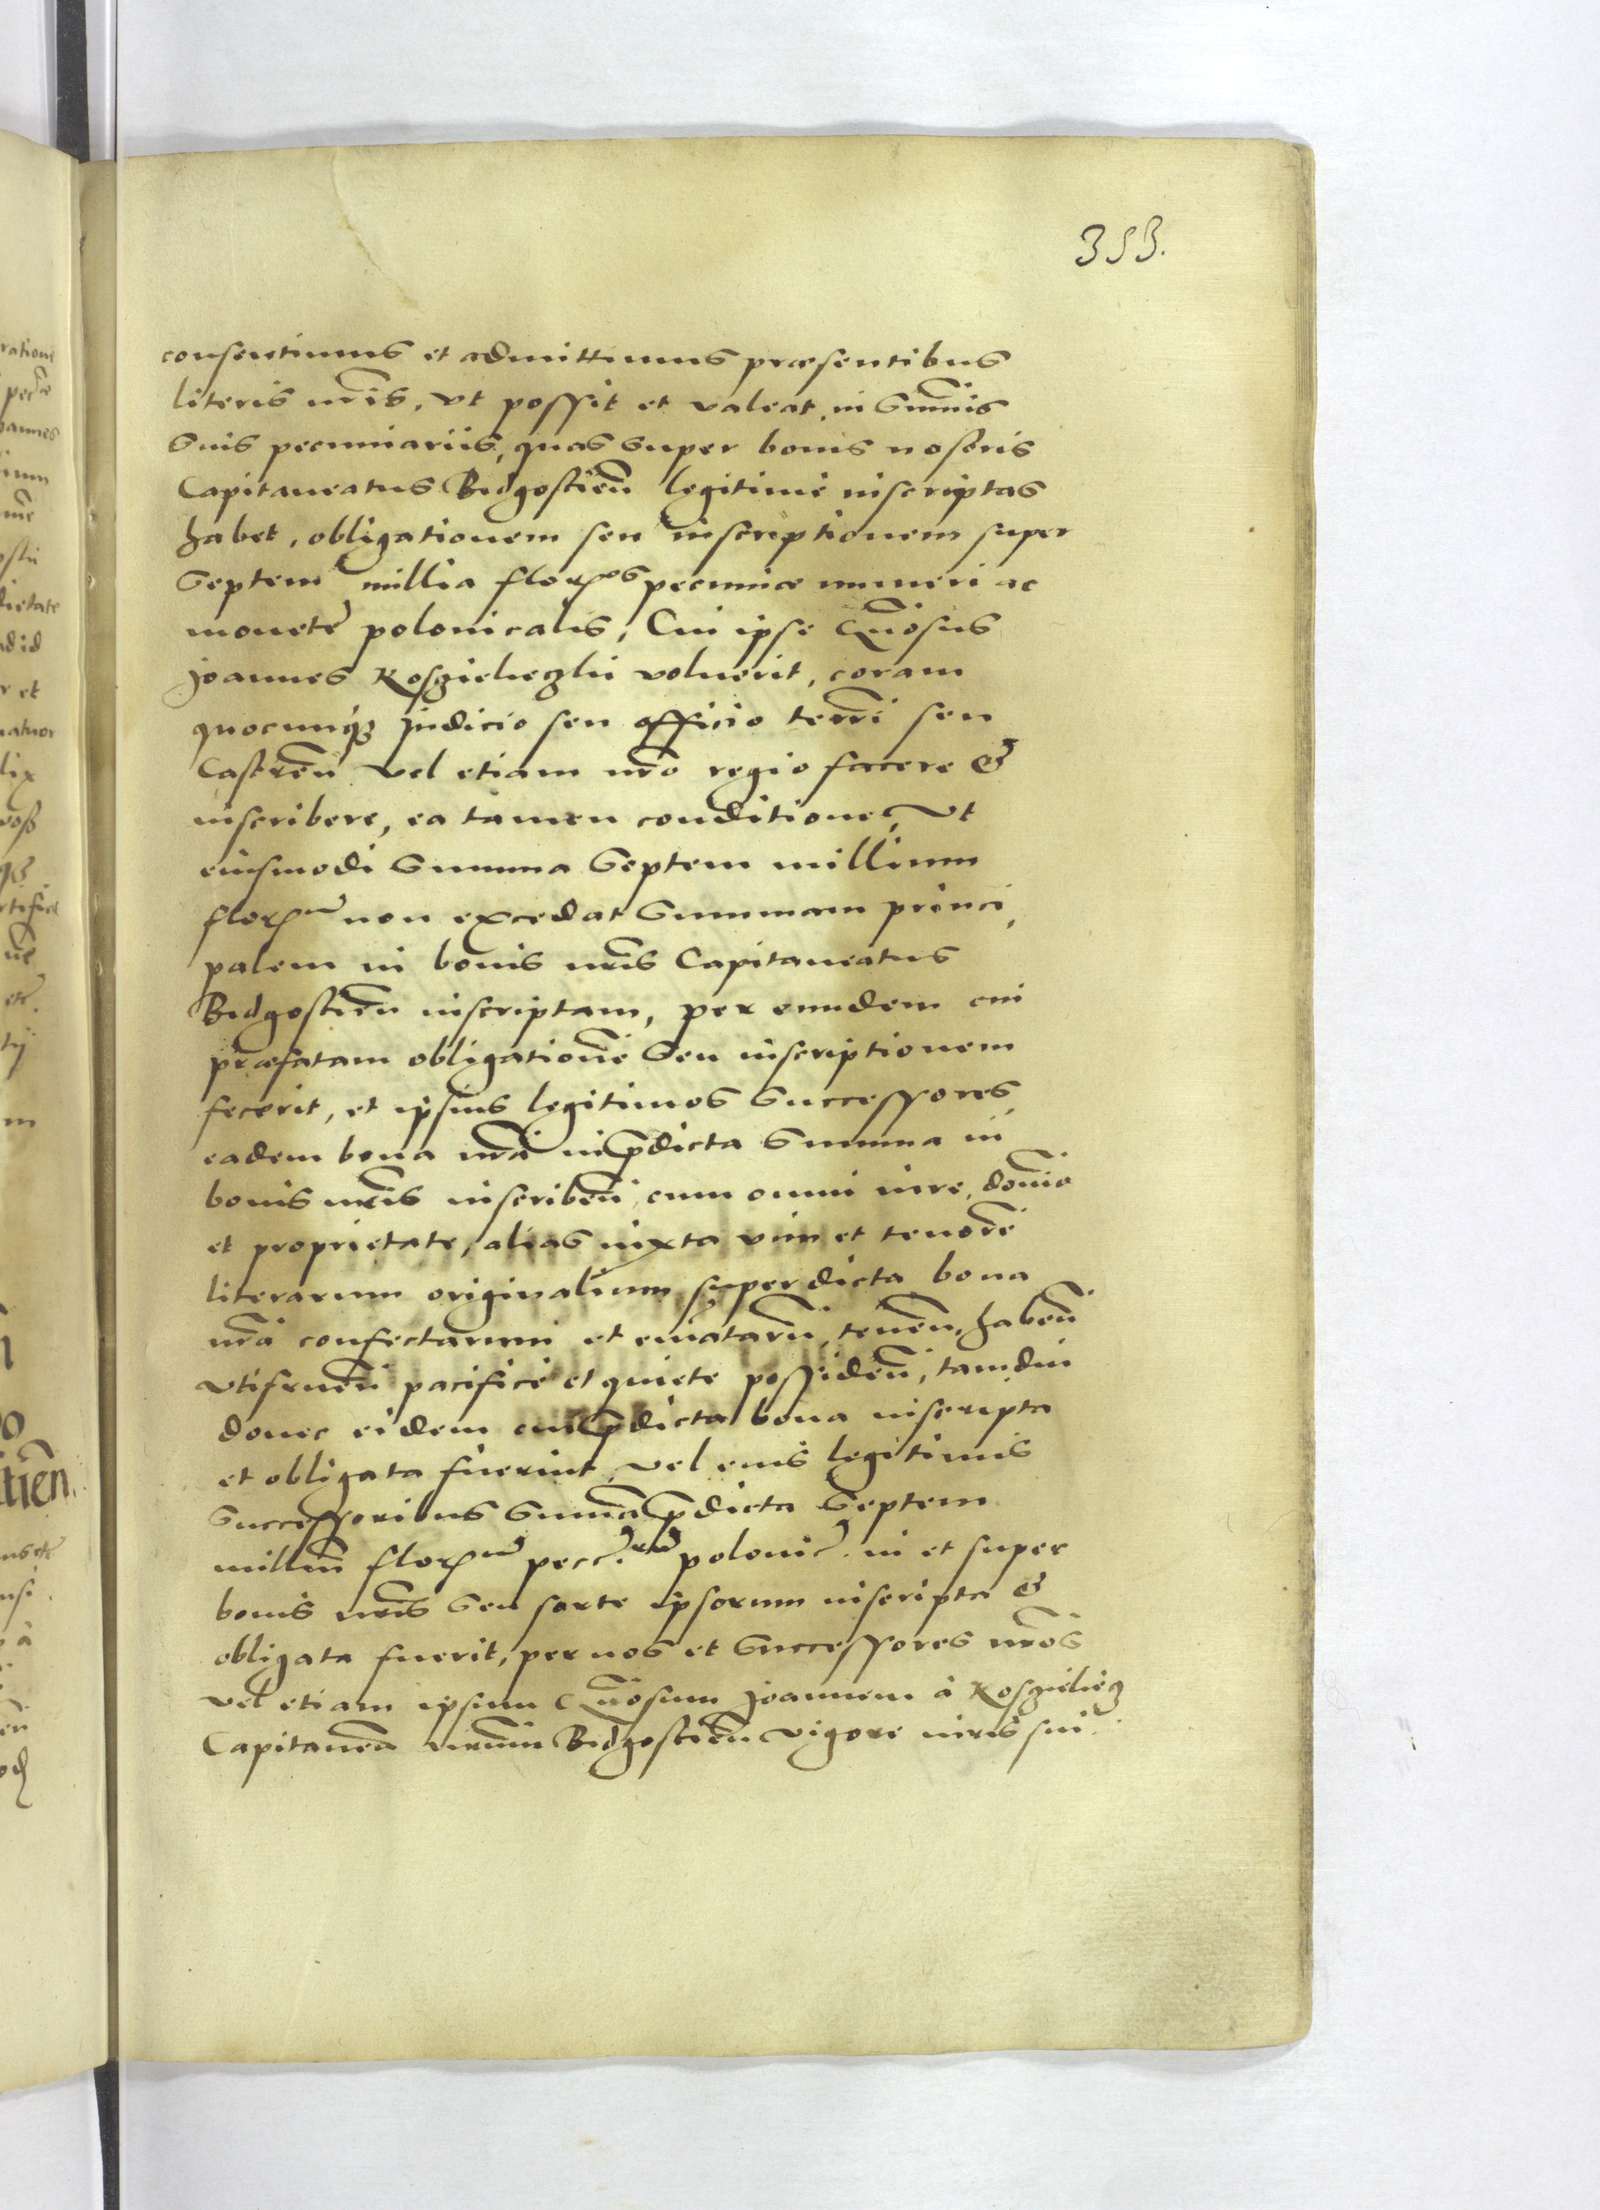 353.
consentimus et admittimus præsentibus
literis nr̃is, vt possit et valeat, in Sum̃is
Suis pecuniariis, quas super bonis nostris
Capitaneatus Bidgostien̄ legitime inscriptas
habet, obligationem seu inscriptionem super
Septem millia flor̃os pecuniæ numeri ac
monete polonicalis, Cui ipse Gn̄osus
Joannes Koszielieczki voluerit, coram
quocunq; Judicio seu officio terrī seu
Castren̄ vel etiam nr̃o regio facere &
inscribere, ea tamen conditione, Vt
eiusmodi Summa Septem millium
flor̃m non excedat Summam princi,
palem in bonis nr̃is Capitaneatus
Bidgostien̄ inscriptam, per eundem cui
præfatam obligationē Seu inscriptionem
fecerit, et ipsius legitimos Successores
eadem bona nr̃a in p̄dicta Summa in
bonis nr̃is inscriben̄, cum omni iure, domīo
et proprietate, alias iuxta vim et tenorē
literarum originalium super dicta bona
nr̃a confectarum et ematarū, tenen̄, haben̄
vtifruen̄ pacifice et quiete possiden̄, tamdiu
donec eidem cui p̄dicta bona inscripta
et obligata fuerint, vel eius legitimis
Successoribus Sum̄a p̄dicta Septem
milliū flor̃m pecc. polonic. in et super
bonis nr̃is Seu sorte ipsorum inscripta &
obligata fuerit, per nos et Successores nr̃os
vel etiam ipsum Gn̄osum Joannem à Koszieliecz
Capitaneū nr̃um Bidgostien̄ vigore iuris sui